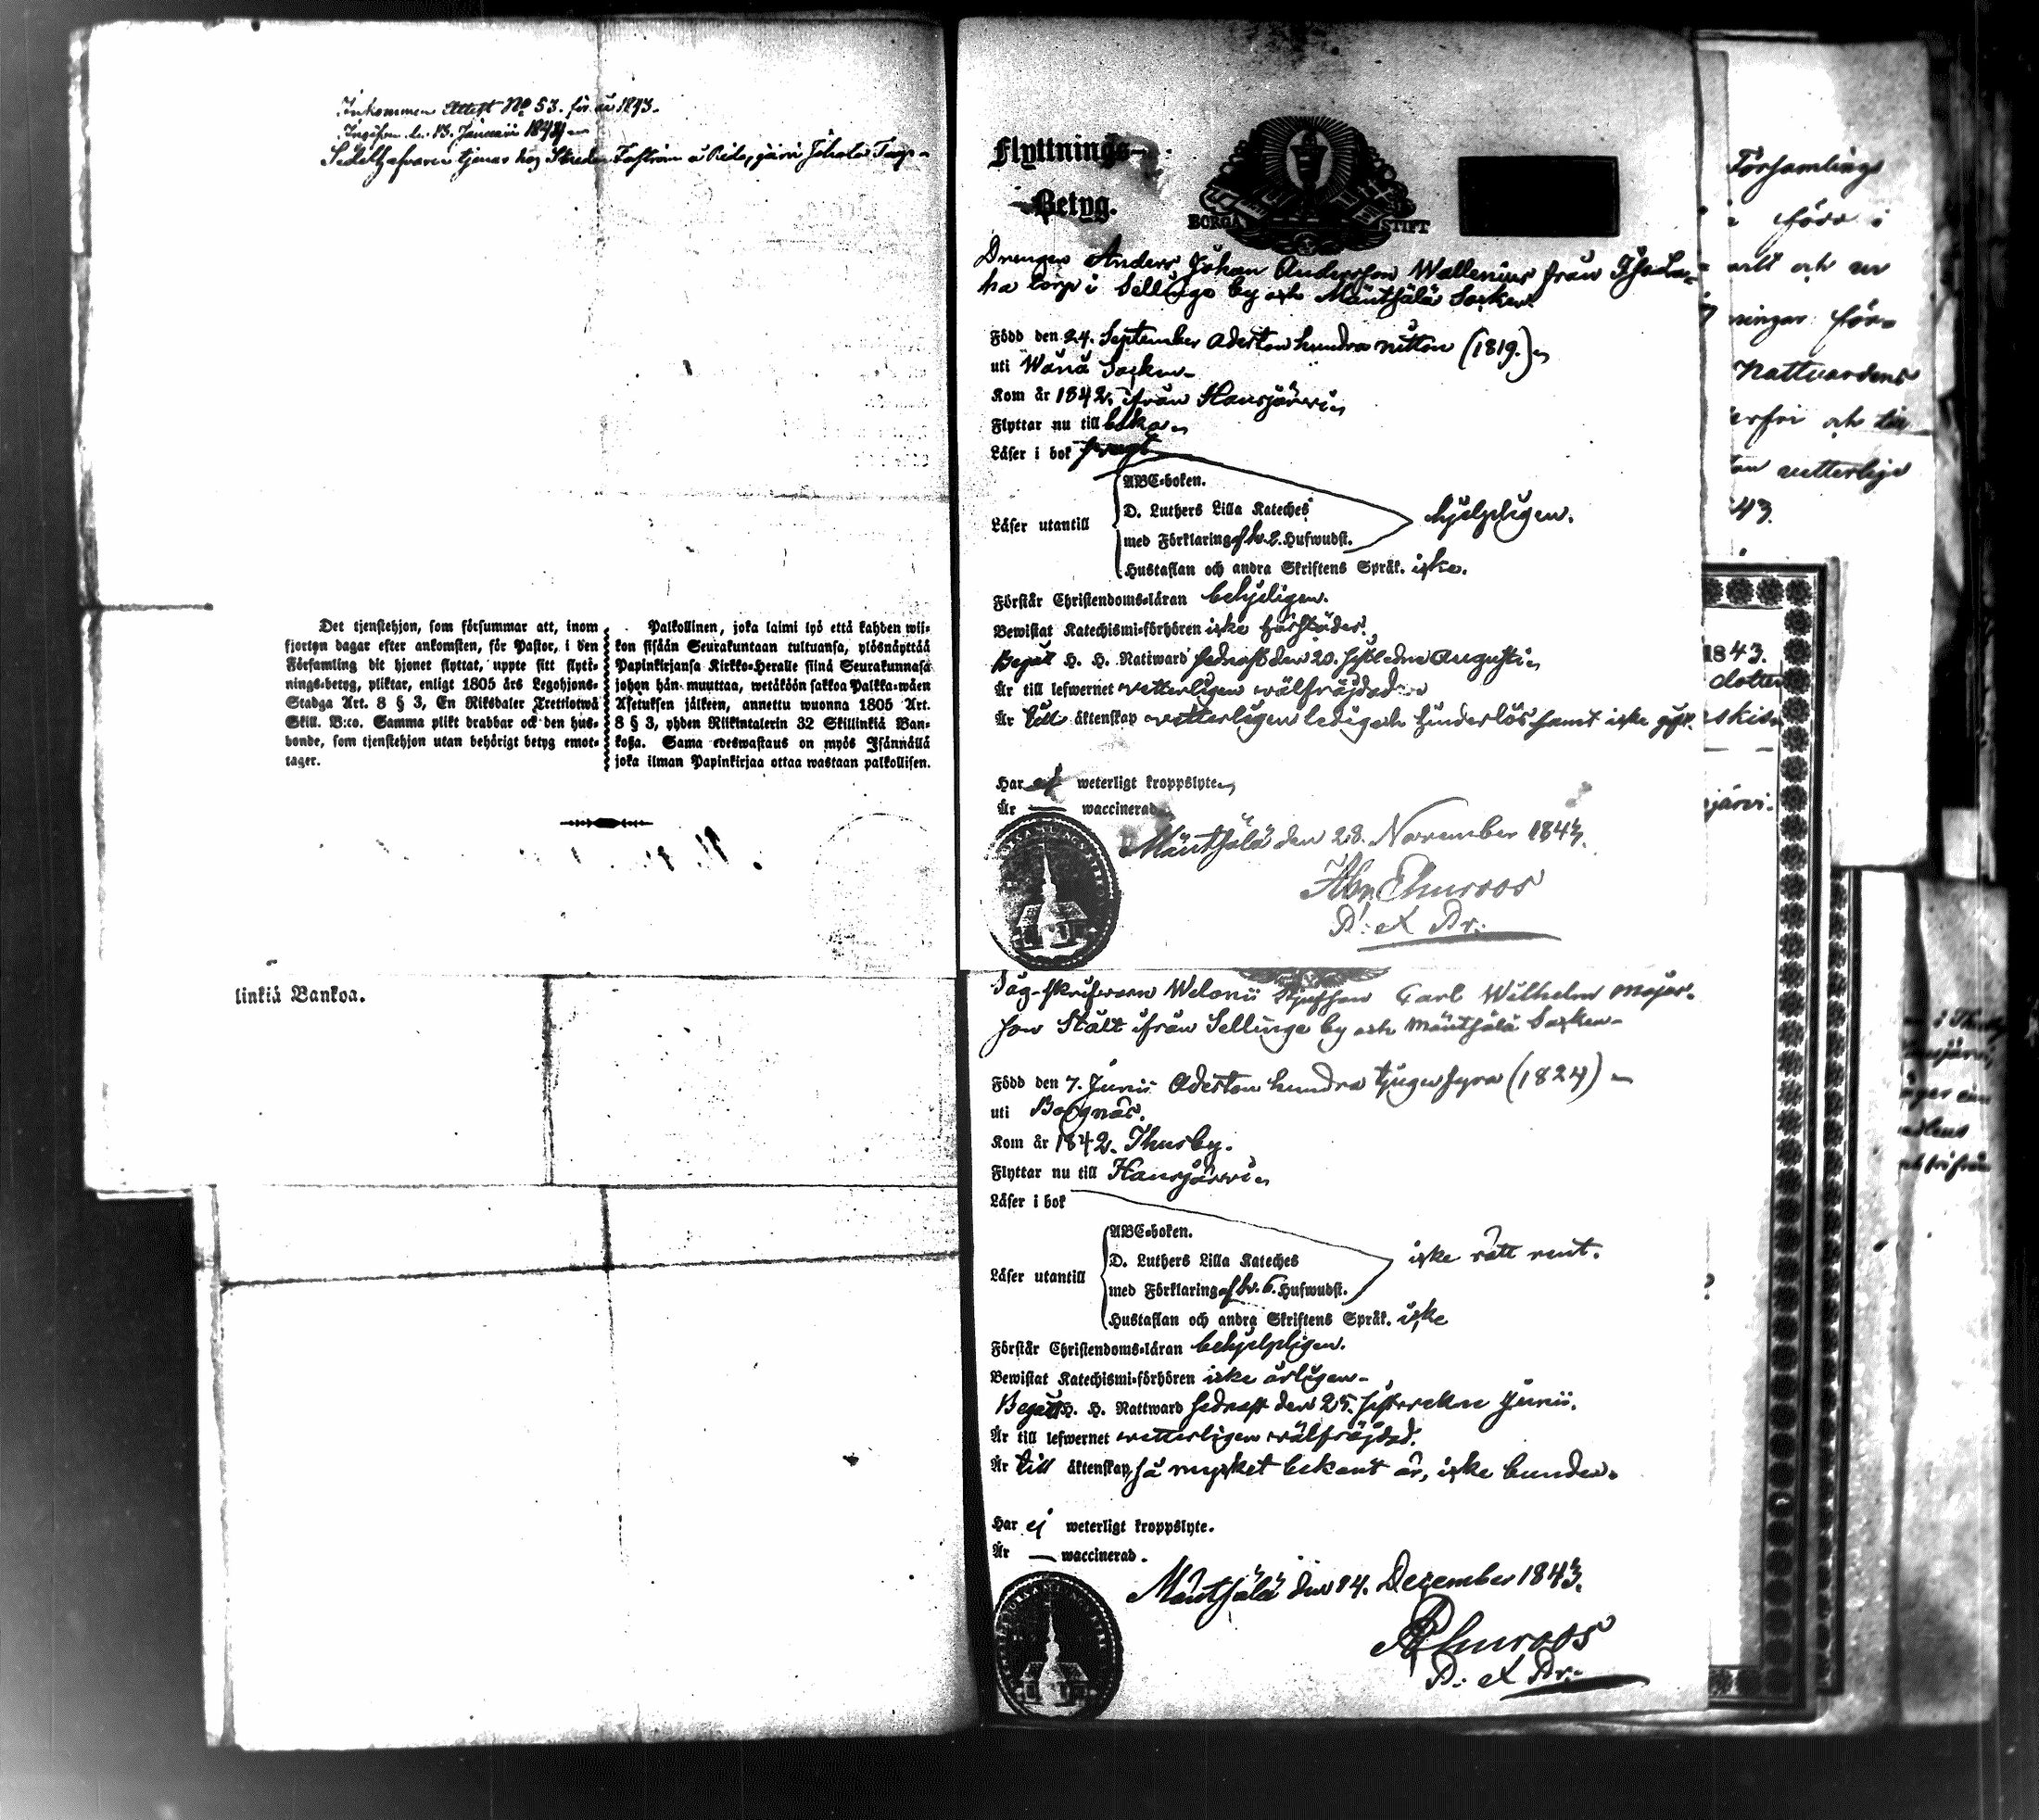 Inkommen Attest No 53. för år 1843.
d. 13. Januarii 1844
tjenar hos
Det tjenstehjon, som försummar att, inom
fjorton dagar efter ankomsten, för Pastor, i den
Församling dit hjonet flyttat, uppte sitt flytt-
nings-betyg, pliktar, enligt 1805 års Legohjons-
Stadga Art. 8 § 3, En Riksdaler Trettiotwå
Skill. B:co. Samma plikt drabbar ock den hus-
bonde, som tjenstehjon utan behörigt betyg emot-
tager.
Palkollinen, joka laimi lyö että kahden wii-
kon sisään Seurakuntaan tultuansa, ylösnäyttää
Papinkirjansa Kirkko-Heralle siinä Seurakunnasa
johon hän muuttaa, wetäköön sakkoa Palkka-wäen
Asetuksen jälkeen, annettu wuonna 1805 Art.
8 § 3, yhden Riikintalerin 32 Skillinkiä Ban-
kosa. Sama edeswastaus on myös Isännällä
joka ilman Papinkirjaa ottaa wastaan palkollisen.
linkiä Bankoa.
Flyttnings-
Betyg.
BORGÅ STIFT
Drengen Anders Johan Andersson Wallenius från
torp i Sellinge by och Mäntsälä Socken.
Född den 24. September Aderton hundra nitton (1819.)
uti Wånå Socken
Kom år 1842. ifrån Hausjärwi
Flyttar nu till
Läser i bok svagt
ABC-boken.
D. Luthers Lilla Kateches
Läser utantill
hjelpligen.
med Förklaring af hw. 2. Hufwudst.
Hustaflan och andra Skriftens Språk. icke.
Förstår Christendoms-läran behjelpligen.
Bewistat Katechismi-förhören icke
Begått H. H. Nattward sednast den 20. sistledne Augusti
Är till lefwernet vetterligen wälfrägdad
Är till äktenskap vetterligen ledig och hinderlös samt icke gift.
Har ej weterligt kroppslyte
Är — waccinerad
Mäntsälä den 28. November 1843.
Abr. Elmroos
Såg-skrifvaren Carl Wilhelm Majors-
son Stålt ifrån Sellinge by och Mäntsälä Socken
Född den 7. Junii Aderton hundra tjugu fyra (1824)
uti Borgnäs.
Kom år 1842. Thusby.
Flyttar nu till Hausjärwi
Läser i bok
ABC-boken.
D. Luthers Lilla Kateches
icke rätt rent.
Läser utantill
med Förklaring af hw. 6. Hufwudst.
Hustaflan och andra Skriftens Språk. icke
Förstår Christendoms-läran behjelpligen.
Bewistat Katechismi-förhören icke årligen
Begått H. H. Nattward sednast den 25. Junii.
Är till lefwernet vetterligen wälfrägdad.
Är till äktenskap, så mycket bekant är, icke bunden.
Har ej weterligt kroppslyte.
Är — waccinerad.
Mäntsälä den 14. December 1843.
Elmroos
Församlings
född i
Nattvardens
43.
1843.
järvi.